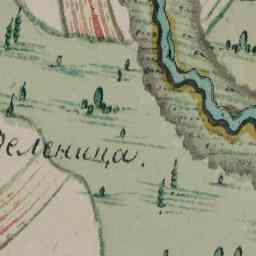 деленица.